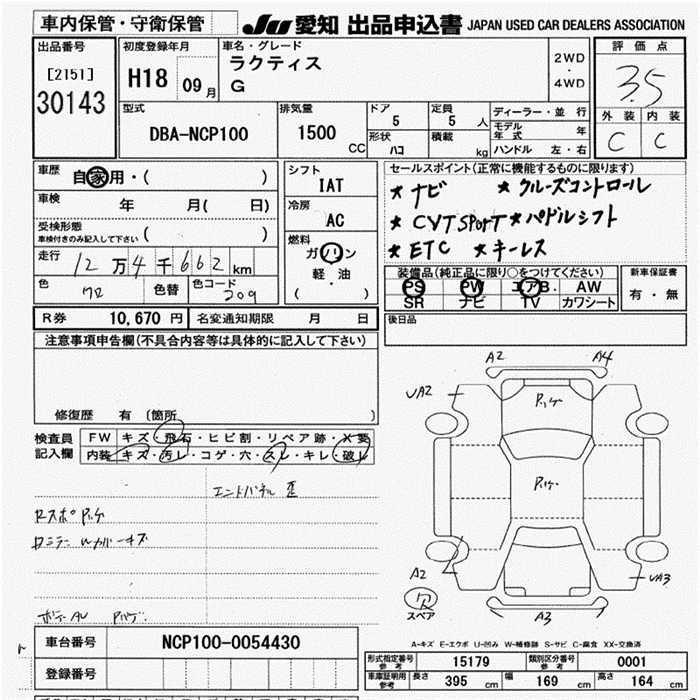 車内保管・守衛保管
JU 愛知 出品申込書 JAPAN USED CAR DEALERS ASSOCIATION
出品番号
[2151]
30143
初度登録年月
H18 09月
車名・グレード
ラクティス
G
2WD
・
4WD
評価点
3.5
外装 内装
C C
型式
DBA-NCP100
排気量
1500 CC
ドア
5
定員
5 人
形状
ハコ
積載
kg
ディーラー・並行
モデル年式 年
ハンドル 左・右
車歴
自家用・( )
車検
年 月( 日)
受検形態
車検付きのみ記入して下さい ( )
走行
12万4千662km
色
色替
色コード
209
シフト
IAT
冷房
AC
燃料
ガソリン
・
軽・油
( )
セールスポイント(正常に機能するものに限ります)
★ナビ ★クルーズコントロール
★CVTSPORT ★パドルシフト
★ETC ★キーレス
装備品(純正品に限り○をつけてください)
PS PW エアB. AW
SR ナビ TV カワシート
新車保証書
有・無
後日品
R券 10,670円 名変通知期限 月 日
注意事項申告欄(不具合内容等は具体的に記入して下さい)
修復歴 有 (箇所 )
検査員記入欄
FW キズ・飛石・ヒビ割・リペア跡・X要
内装 キズ・汚レ・コゲ・穴・スレ・キレ・破レ
エンドパネル 歪
A2 A4
UA2
A2
UA3
A3
スペア
A-キズ E-エクボ U-凹み W-補修跡 S-サビ C-腐食 XX-交換済
車台番号 NCP100-0054430
登録番号
形式指定番号 参考 15179 類別区分番号 参考 0001
車庫証明用 参考 長さ 395 cm 幅 169 cm 高さ 164 cm